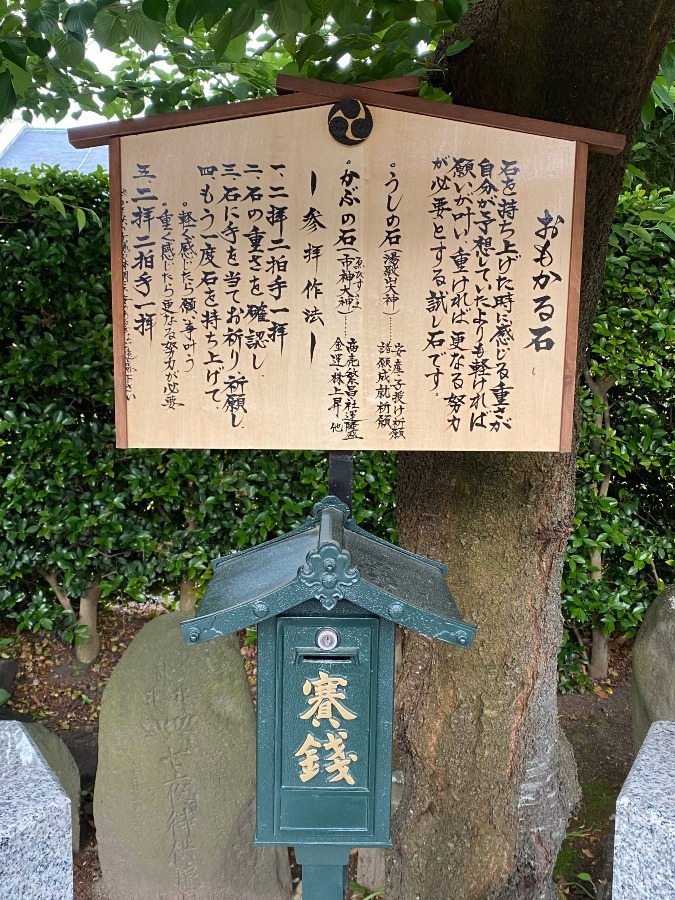 おもかる石
石を持ち上げた時に感じる重さが
自分が予想していたよりも軽ければ
願いが叶い、重ければ更なる努力
が必要とする試し石です。
うしの石
安産子授け祈願
諸願成就祈願
かぶの石(市神大神)
えびすさま
商売繁昌社運隆盛
金運・株上昇 他
ー参拝作法ー
一、二拝二拍手一拝
二、石の重さを確認し
三、石に手を当てお祈り・祈願し
四、もう一度石を持ち上げて
軽く感じたら願い事叶う
重く感じたら更なる努力が必要
五、二拝二拍手一拝
賽銭